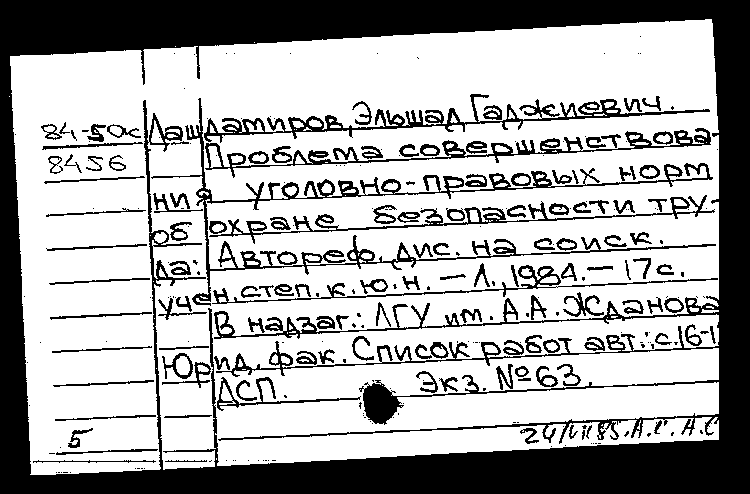 84-5ох Лашдамиров, Эльшад Гаджиевич.
8456 Проблема совершенствова-
ния уголовно-правовых норм
об охране безопасности тру-
да: Автореф. дис. на соиск.
учен. степ. к. ю. н. — Л., 1984. — 17 с.
В надзаг.: ЛГУ им. А. А. Жданова
Юрид. фак. Список работ авт.: с. 16-1
ДСП. Экз. № 63.
5 24/VII 85. А.С. А.С